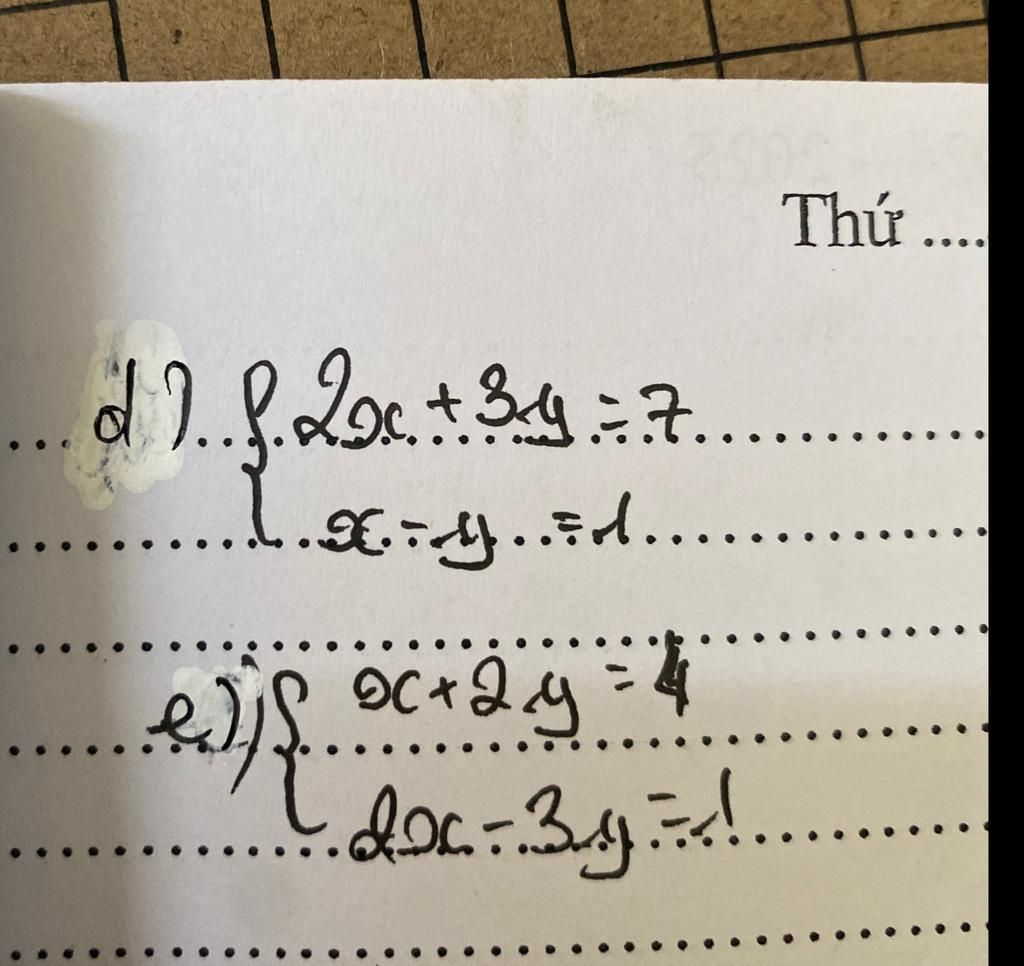 Thứ ....
d) { 2x + 3y = 7
x - y = 1
e) { x + 2y = 4
2x - 3y = 1